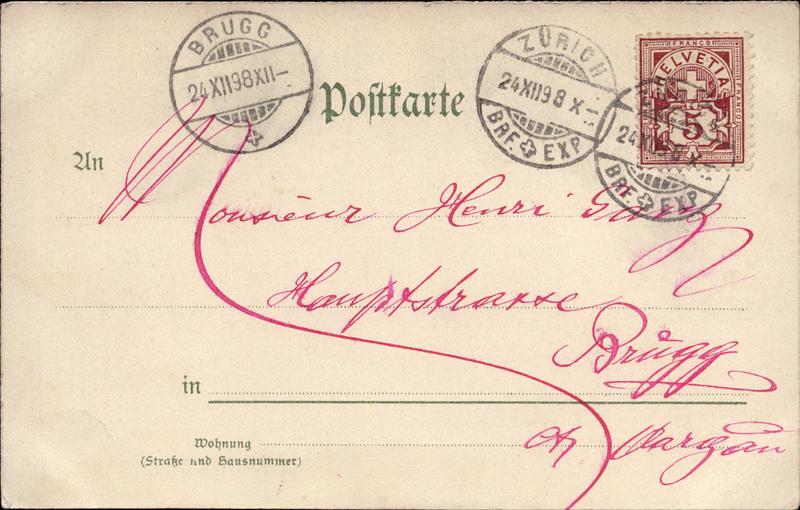 BRUGG
24 XII 98 XII–
Postkarte
ZÜRICH
24 XII 98 X–
BRF. EXP.
FRANCO
HELVETIA
FRANCO
5
24 XII 98 X–
BRF. EXP.
An
Monsieur Henri
Hauptstrasse
Brugg
in
Wohnung
(Straße und Hausnummer)
Ct. Aargau